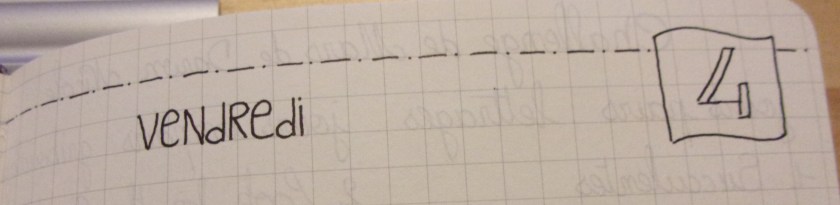 4
VeNdRedi